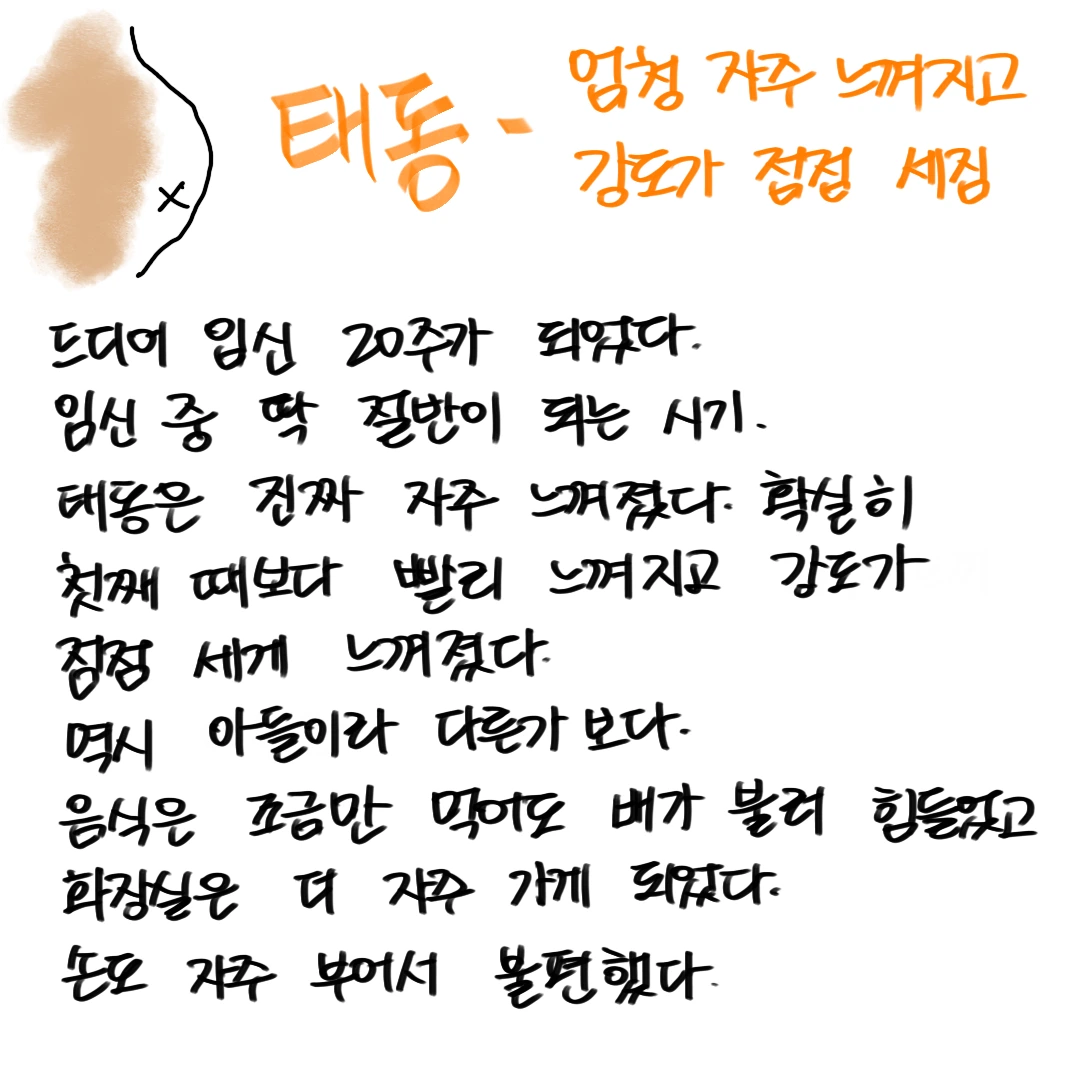 태동 -
엄청 자주 느껴지고
강도가 점점 세짐
드디어 임신 20주가 되었다.
임신 중 딱 절반이 되는 시기.
태동은 진짜 자주 느껴졌다. 확실히
첫째 때보다 빨리 느껴지고 강도가
점점 세게 느껴졌다.
역시 아들이라 다른가 보다.
음식은 조금만 먹어도 배가 불러 힘들었고
화장실은 더 자주 가게 되었다.
손도 자주 부어서 불편했다.